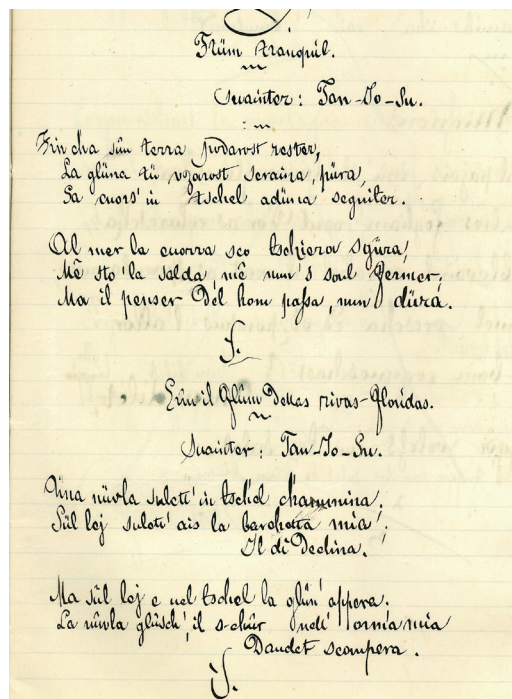 Flüm tranquil.
Suainter: Tan-Jo-Su.
Fin cha sün terra podarost rester,
La glüna tü vezarost seraina, püra,
Sa cuors' in tschel adüna seguiter.
Al mer la cuorra sco tschiera sgüra,
Mê sto la salda, mê num's soul fermer;
Ma il penser del hom passa, num düra.
S.
Sün il flüm dellas rivas-floridas.
Suainter: Tan-Jo-Su.
Üna nüvla sulett' in tschel chammina;
Sül lej sulett' ais la barchetta mia;
Il di declina.
Ma sül lej e nel tschel la glün' appera:
La nüvla glüsch', il s-chür nell' orma mia
Dandet scompera.
S.